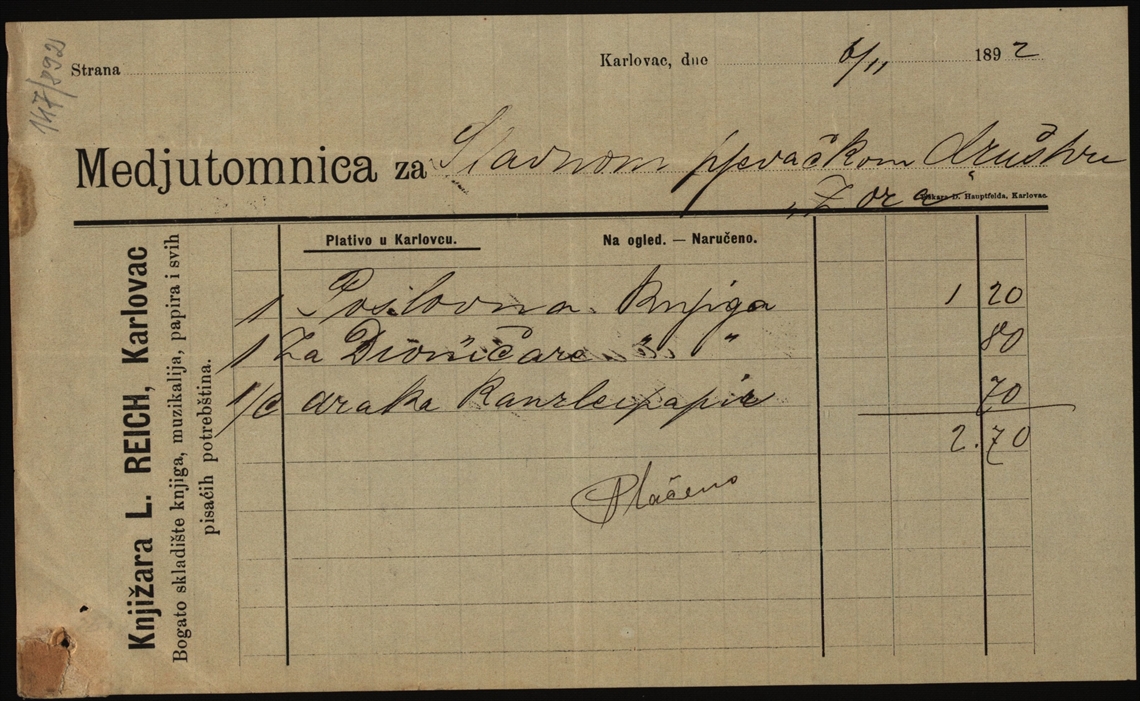 147/892
Strana
Karlovac, dne 6/11 1892
Medjutomnica za Slavnom pjevačkom družtvu
„Zora“
Tiskara D. Hauptfelda, Karlovac.
Knjižara L. REICH, Karlovac
Bogato skladište knjiga, muzikalija, papira i svih
pisaćih potrebština.
Plativo u Karlovcu. Na ogled. — Naručeno.
1 Poslovna knjiga 1 20
1 Za Dioničare " " 80
1/C araka Kanzleipapir 70
2.70
Plaćeno